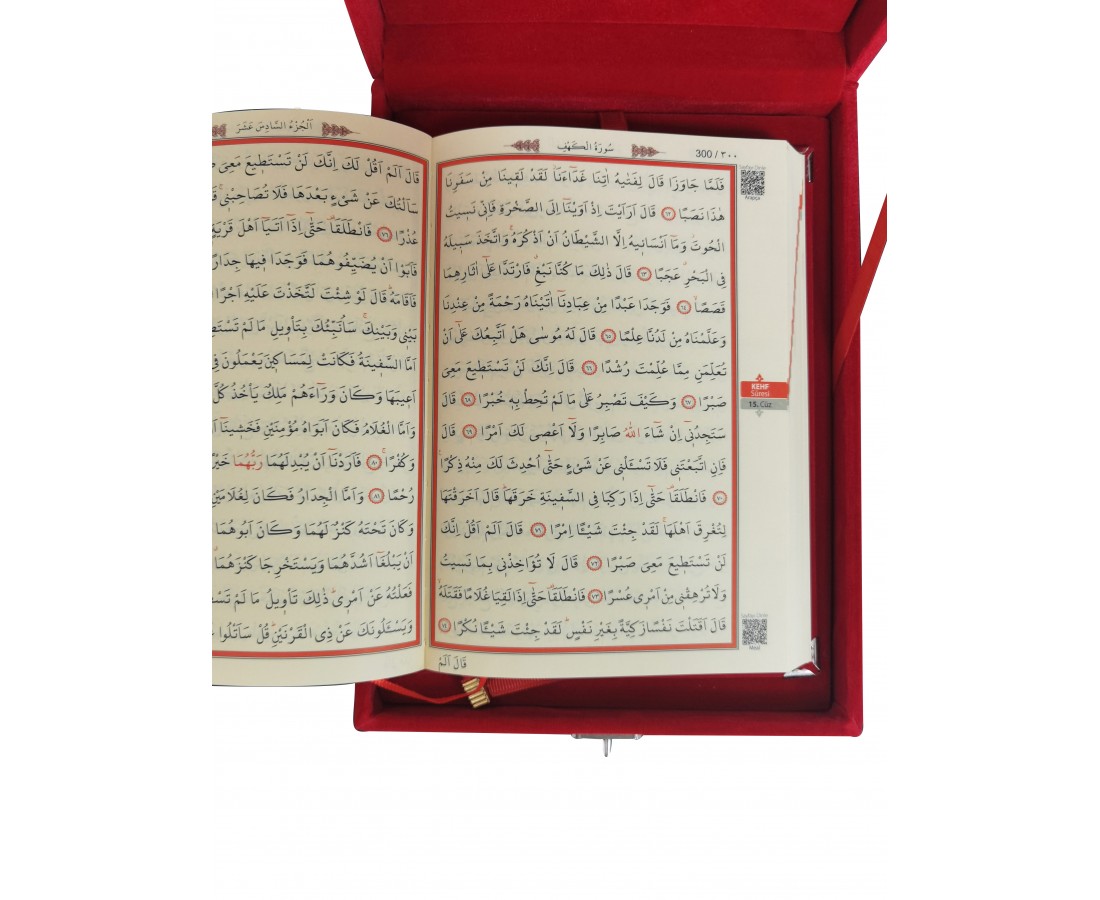 سُورَةُ الْكَهْفِ
300 / ٣٠٠
فَلَمَّا جَاوَزَا قَالَ لِفَتٰيهُ اٰتِنَا غَدَٓاءَنَاۘ لَقَدْ لَقٖينَا مِنْ سَفَرِنَا
هٰذَا نَصَبًا ﴿٦٢﴾ قَالَ اَرَاَيْتَ اِذْ اَوَيْنَٓا اِلَى الصَّخْرَةِ فَاِنّٖى نَسٖيتُ
الْحُوتَۘ وَمَٓا اَنْسَانٖيهُ اِلَّا الشَّيْطَانُ اَنْ اَذْكُرَهُۚ وَاتَّخَذَ سَبٖيلَهُ
فِى الْبَحْرِۗ عَجَبًا ﴿٦٣﴾ قَالَ ذٰلِكَ مَا كُنَّا نَبْغِۗ فَارْتَدَّا عَلٰٓى اٰثَارِهِمَا
قَصَصًاۙ ﴿٦٤﴾ فَوَجَدَا عَبْدًا مِنْ عِبَادِنَٓا اٰتَيْنَاهُ رَحْمَةً مِنْ عِنْدِنَا
وَعَلَّمْنَاهُ مِنْ لَدُنَّا عِلْمًا ﴿٦٥﴾ قَالَ لَهُ مُوسٰى هَلْ اَتَّبِعُكَ عَلٰٓى اَنْ
تُعَلِّمَنِ مِمَّا عُلِّمْتَ رُشْدًا ﴿٦٦﴾ قَالَ اِنَّكَ لَنْ تَسْتَطٖيعَ مَعِىَ
صَبْرًا ﴿٦٧﴾ وَكَيْفَ تَصْبِرُ عَلٰى مَا لَمْ تُحِطْ بِهٖ خُبْرًا ﴿٦٨﴾ قَالَ
سَتَجِدُنٖٓى اِنْ شَٓاءَ اللّٰهُ صَابِرًا وَلَٓا اَعْصٖى لَكَ اَمْرًا ﴿٦٩﴾ قَالَ
فَاِنِ اتَّبَعْتَنٖى فَلَا تَسْـَٔلْنٖى عَنْ شَىْءٍ حَتّٰٓى اُحْدِثَ لَكَ مِنْهُ ذِكْرًاۚ
﴿٧٠﴾ فَانْطَلَقَاۗ حَتّٰٓى اِذَا رَكِبَا فِى السَّفٖينَةِ خَرَقَهَاۗ قَالَ اَخَرَقْتَهَا
لِتُغْرِقَ اَهْلَهَاۚ لَقَدْ جِئْتَ شَيْـًٔا اِمْرًا ﴿٧١﴾ قَالَ اَلَمْ اَقُلْ اِنَّكَ
لَنْ تَسْتَطٖيعَ مَعِىَ صَبْرًا ﴿٧٢﴾ قَالَ لَا تُؤَاخِذْنٖى بِمَا نَسٖيتُ
وَلَا تُرْهِقْنٖى مِنْ اَمْرٖى عُسْرًا ﴿٧٣﴾ فَانْطَلَقَاۗ حَتّٰٓى اِذَا لَقِيَا غُلَامًا فَقَتَلَهُۙ
قَالَ اَقَتَلْتَ نَفْسًا زَكِيَّةً بِغَيْرِ نَفْسٍۗ لَقَدْ جِئْتَ شَيْـًٔا نُكْرًا ﴿٧٤﴾
قَالَ اَلَمْ
Arapça
KEHF
Sûresi
15. Cüz
Meal
اَلْجُزْءُ السَّادِسَ عَشَرَ
قَالَ اَلَمْ اَقُلْ لَكَ اِنَّكَ لَنْ تَسْتَطٖيعَ مَعِىَ
سَاَلْتُكَ عَنْ شَىْءٍ بَعْدَهَا فَلَا تُصَاحِبْنٖىۚ
عُذْرًا ﴿٧٦﴾ فَانْطَلَقَاۗ حَتّٰٓى اِذَٓا اَتَيَٓا اَهْلَ قَرْيَةٍ
فَاَبَوْا اَنْ يُضَيِّفُوهُمَا فَوَجَدَا فٖيهَا جِدَارًا
فَاَقَامَهُۗ قَالَ لَوْ شِئْتَ لَتَّخَذْتَ عَلَيْهِ اَجْرًا
بَيْنٖى وَبَيْنِكَۚ سَاُنَبِّئُكَ بِتَاْوٖيلِ مَا لَمْ
اَمَّا السَّفٖينَةُ فَكَانَتْ لِمَسَاكٖينَ يَعْمَلُونَ فِى
اَعٖيبَهَا وَكَانَ وَرَٓاءَهُمْ مَلِكٌ يَاْخُذُ كُلَّ
وَاَمَّا الْغُلَامُ فَكَانَ اَبَوَاهُ مُؤْمِنَيْنِ فَخَشٖينَٓا
وَكُفْرًاۚ ﴿٨٠﴾ فَاَرَدْنَٓا اَنْ يُبْدِلَهُمَا رَبُّهُمَا
رُحْمًا ﴿٨١﴾ وَاَمَّا الْجِدَارُ فَكَانَ لِغُلَامَيْنِ
وَكَانَ تَحْتَهُ كَنْزٌ لَهُمَا وَكَانَ اَبُوهُمَا
اَنْ يَبْلُغَٓا اَشُدَّهُمَا وَيَسْتَخْرِجَا كَنْزَهُمَا
فَعَلْتُهُ عَنْ اَمْرٖىۗ ذٰلِكَ تَاْوٖيلُ مَا لَمْ
وَيَسْـَٔلُونَكَ عَنْ ذِى الْقَرْنَيْنِۗ قُلْ سَاَتْلُوا